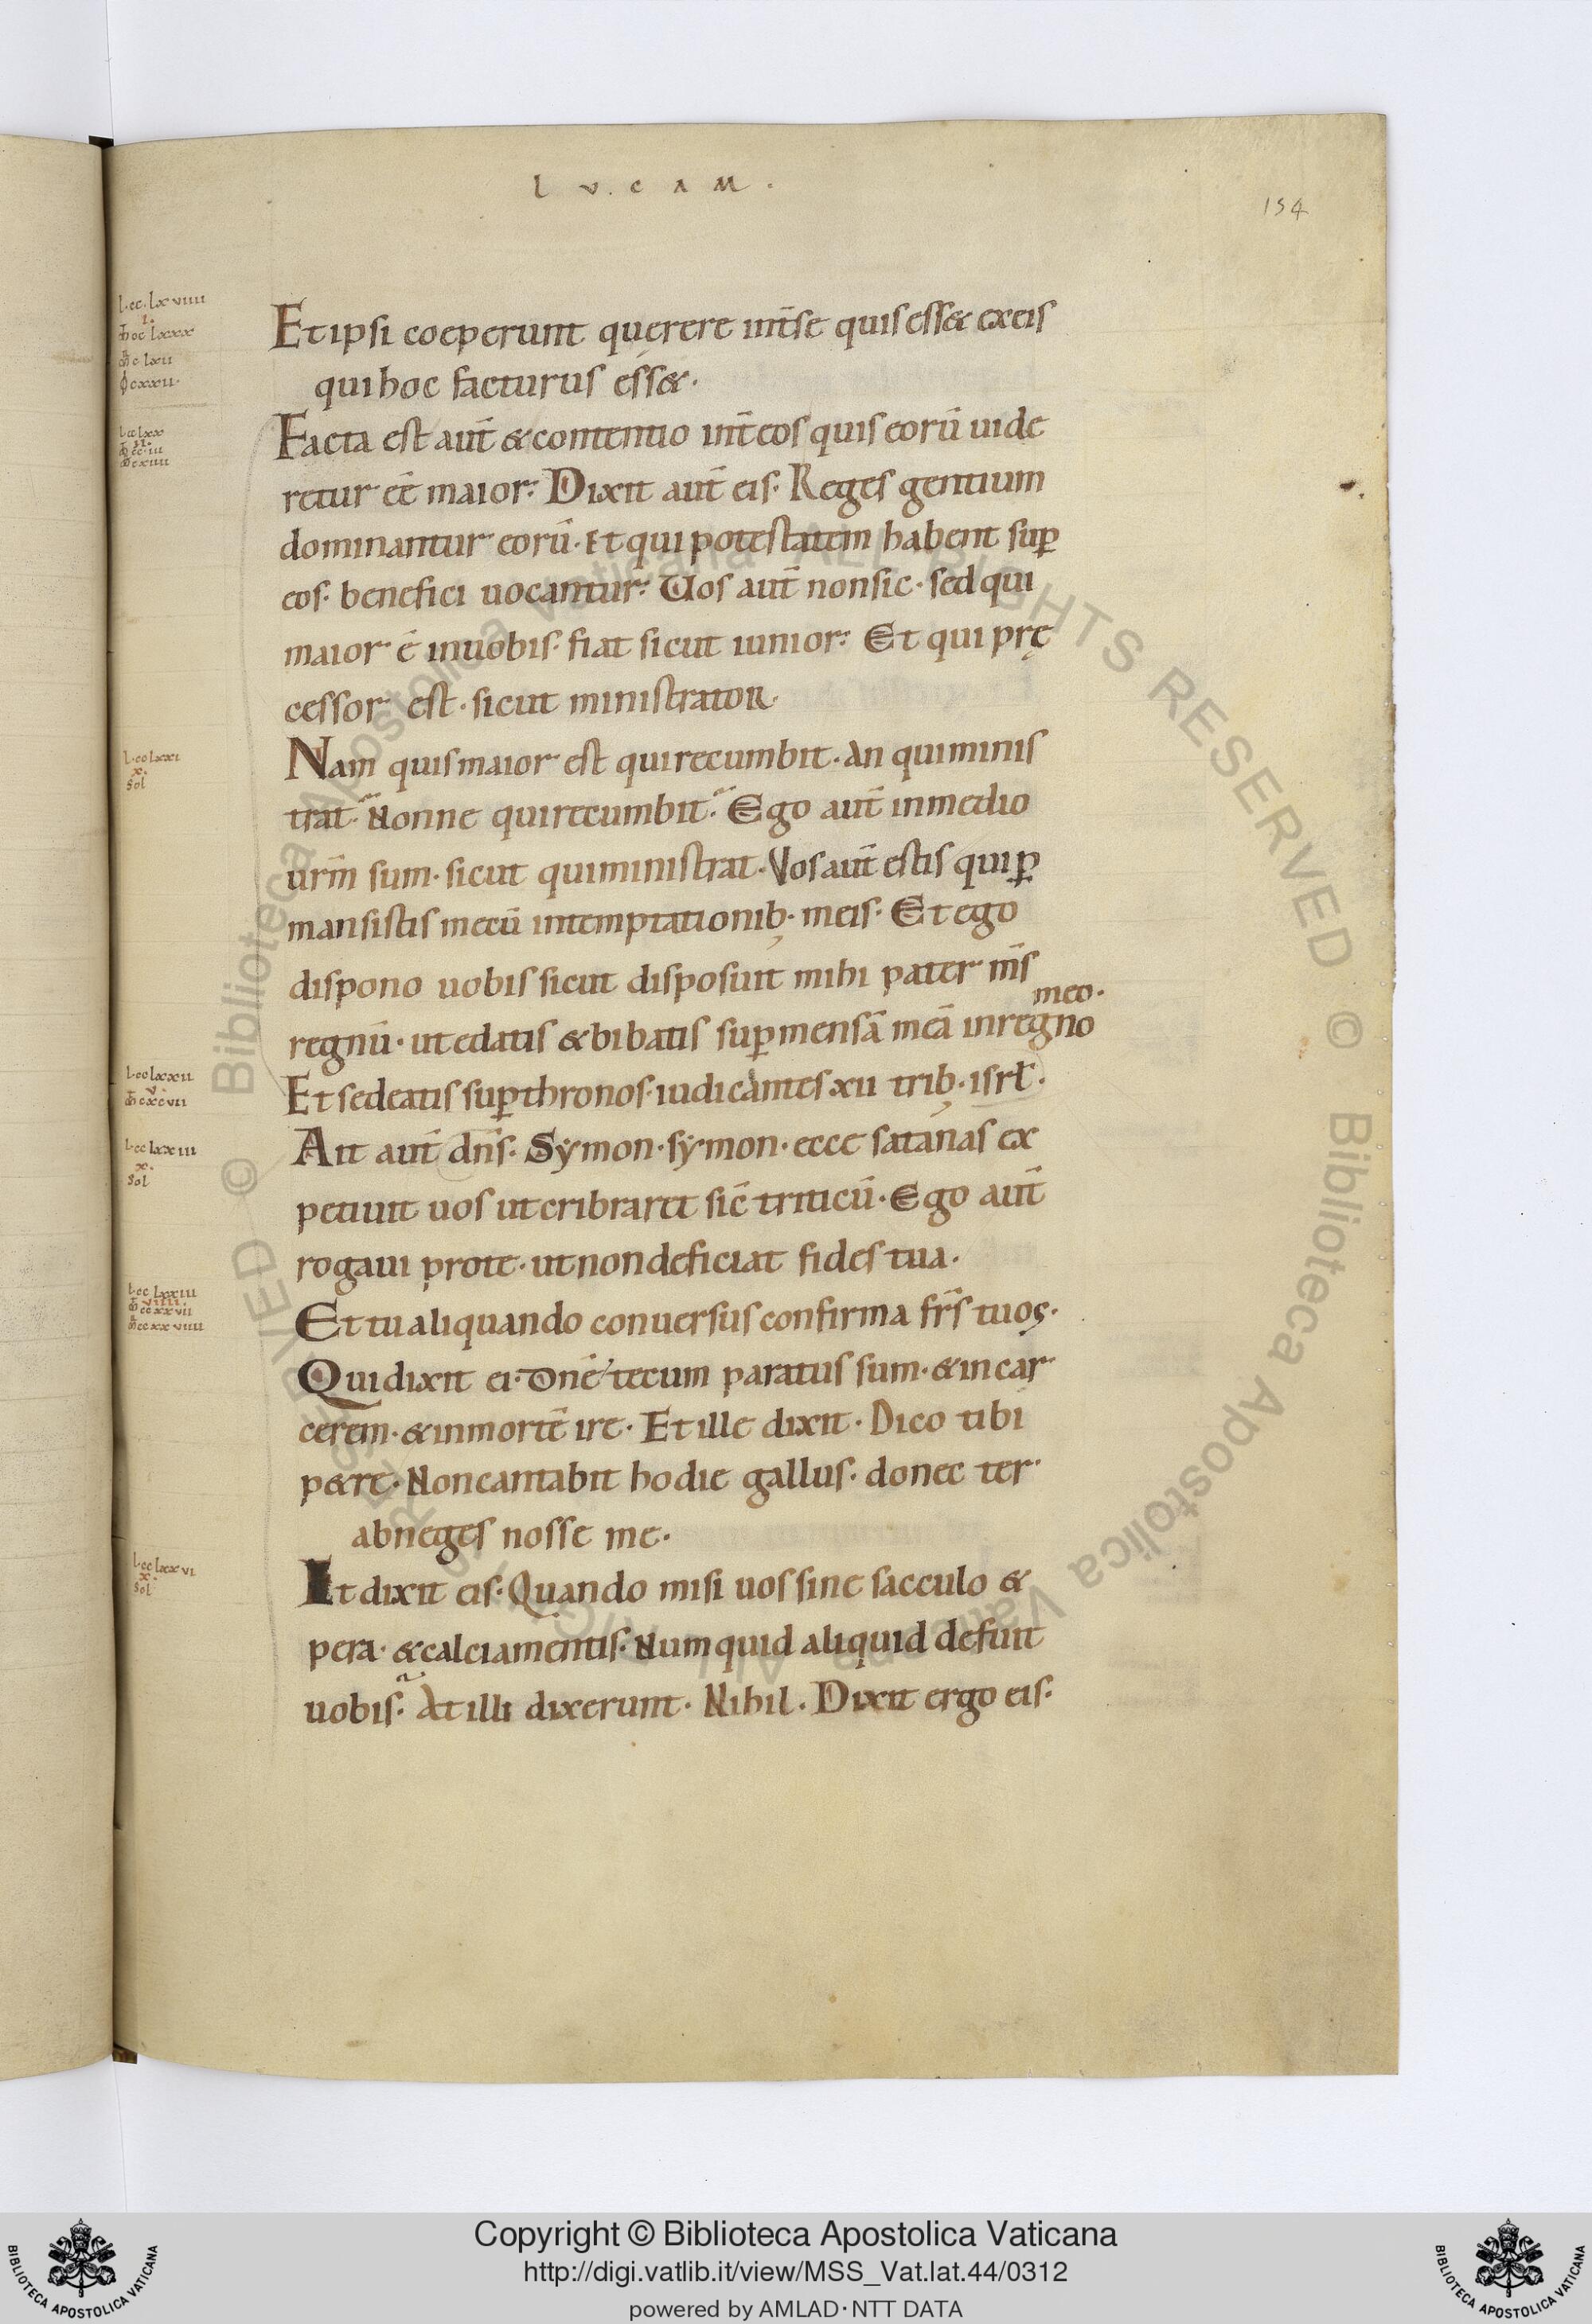 l v. c a m .
154
l. cc. lxviiii
i.
m̄ cc lxxx
m̄r c lxii
io cxxii.
Et ipsi coeperunt querere int̄ se quis ess& ex eis
qui hoc facturus ess&.
l. cc lxx
ii.
m̄ cc.iii
m̄r cxiiii
Facta est aut̄ & contentio int̄ eos quis eorū uide
retur eē maior. Dixit aut̄ eis. Reges gentium
dominantur eorū. Et qui potestatem habent sup̄
eos. benefici uocantur. Uos aut̄ non sic. sed qui
maior ē in uobis. fiat sicut iunior. Et qui prę
cessor est. sicut ministrator.
l. cc lxxi
x.
Sol
Nam quis maior est qui recumbit. an qui minis
trat. Nonne qui recumbit. Ego aut̄ in medio
ur̄m sum. sicut qui ministrat. Vos aut̄ estis qui p̱
mansistis mecū in temptationib; meis. Et ego
dispono uobis sicut disposuit mihi pater m̄s
meo.
regnū. ut edatis & bibatis sup̄ mensā meā in regno
l. cc lxxii
v.
m̄ cxcvii
Et sedeatis sup̄ thronos. iudicantes xii trib; isrl̄.
l. cc lxxiii
x.
Sol
Ait aut̄ dn̄s. Symon. symon. ecce satanas ex
petiuit uos ut cribraret sic̄ triticū. Ego aut̄
rogaui pro te. ut non deficiat fides tua.
l. cc lxxiiii
viiii.
m̄ cclxxvii
m̄r cclxxviiii
Et tu aliquando conuersus confirma fr̄s tuos.
Qui dixit ei. Dn̄e tecum paratus sum. & in car
cerem. & in mortē ire. Et ille dixit. Dico tibi
p&re. Non cantabit hodie gallus. donec ter
abneges nosse me.
l. cc lxxvi
x.
Sol
Et dixit eis. Quando misi uos sine sacculo &
pera. & calciamentis. Numquid aliquid defuit
uobis. At illi dixerunt. Nihil. Dixit ergo eis.
© Biblioteca Apostolica Vaticana ALL RIGHTS RESERVED © Biblioteca Apostolica Vaticana ALL RIGHTS RESERVED
Copyright © Biblioteca Apostolica Vaticana
http://digi.vatlib.it/view/MSS_Vat.lat.44/0312
powered by AMLAD・NTT DATA
BIBLIOTECA APOSTOLICA VATICANA
BIBLIOTECA APOSTOLICA VATICANA